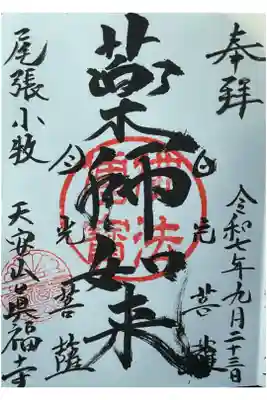 奉拝
令和七年九月二十三日
日光菩薩
薬師如来
月光菩薩
尾張小牧
天安山眞福寺